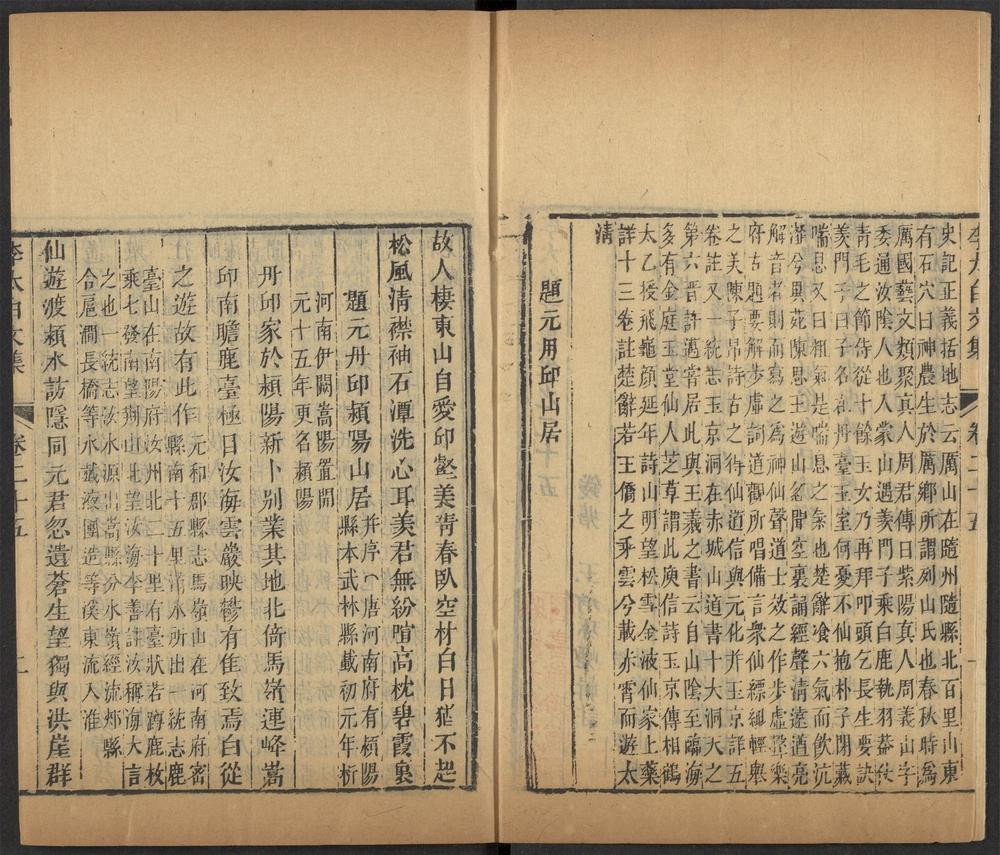 李太白文集 卷二十五 一
史記正義括地志云厲山在隨州隨縣北百里山東
有石穴曰神農生於厲鄉所謂列山氏也春秋時爲
厲國藝文類聚真人周君傳曰紫陽真人周義山字
委通汝陰人也入蒙山遇羨門子乘白鹿執羽葢佽
青毛之節侍從十餘玉女乃再拜叩頭乞長生要訣
羨門子曰子名在丹臺玉室何憂不仙抱朴子閉藏
喘息又曰粗氣是喘息之氣也楚辭飡六氣而飲沆
瀣兮異苑陳思王遊山忽聞空裏誦經聲清遠遒亮
解音者則而寫之爲神仙聲道士效之作步虛聲樂
府古題要解步虛詞道觀所唱備言衆仙縹緲輕舉
之美陳子昂詩古之得仙道信與元化并玉京詳五
卷註又一統志玉京洞在赤城山道書十大洞天之
第六晉許邁嘗居此與王羲之書云自山陰至臨海
多有金庭玉堂仙人芝草謂此庾信詩玉京傳相鶴
太乙授飛龜顏延年詩山明望松雪金液仙家上藥
詳十三卷註楚辭若王僑之乘雲兮載赤霄而遊太
清
題元丹邱山居
故人棲東山自愛邱壑美靑春臥空林白日猶不起
松風清襟袖石潭洗心耳羨君無紛喧高枕碧霞裏
題元丹邱潁陽山居 并序 唐河南府有潁陽
縣本武林縣載初元年析
河南伊闕嵩陽置開
元十五年更名潁陽
丹邱家於潁陽新卜别業其地北倚馬嶺連峰嵩
邱南瞻鹿臺極目汝海雲巖映鬱有佳致焉白從
之遊故有此作 元和郡縣志馬嶺山在河南府密
縣南十五里洧水所出一統志鹿
臺山在南陽府汝州北二十里有臺狀若蹲鹿枚
乘七發南望荆山北望汝海李善註汝稱海大言
之也一統志汝水源出嵩縣分水嶺經流郟縣
合扈澗長橋等水㶏㵐團造等溪東流入淮
仙遊渡潁水訪隱同元君忽遺蒼生望獨與洪崖群
李太白文集 卷二十五 二